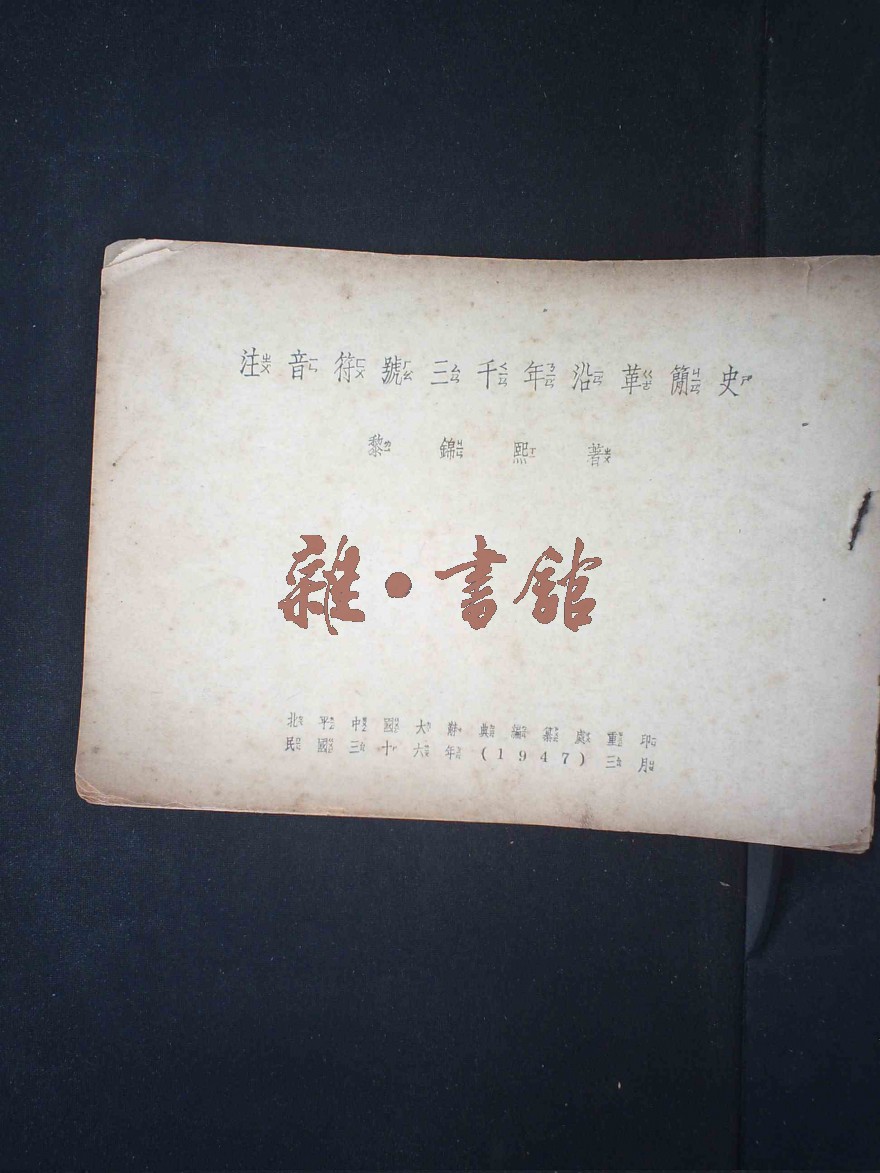 注音符號三千年沿革簡史
黎錦熙著
雜·書館
北平中國大辭典編纂處重印
民國三十六年(1947)三月